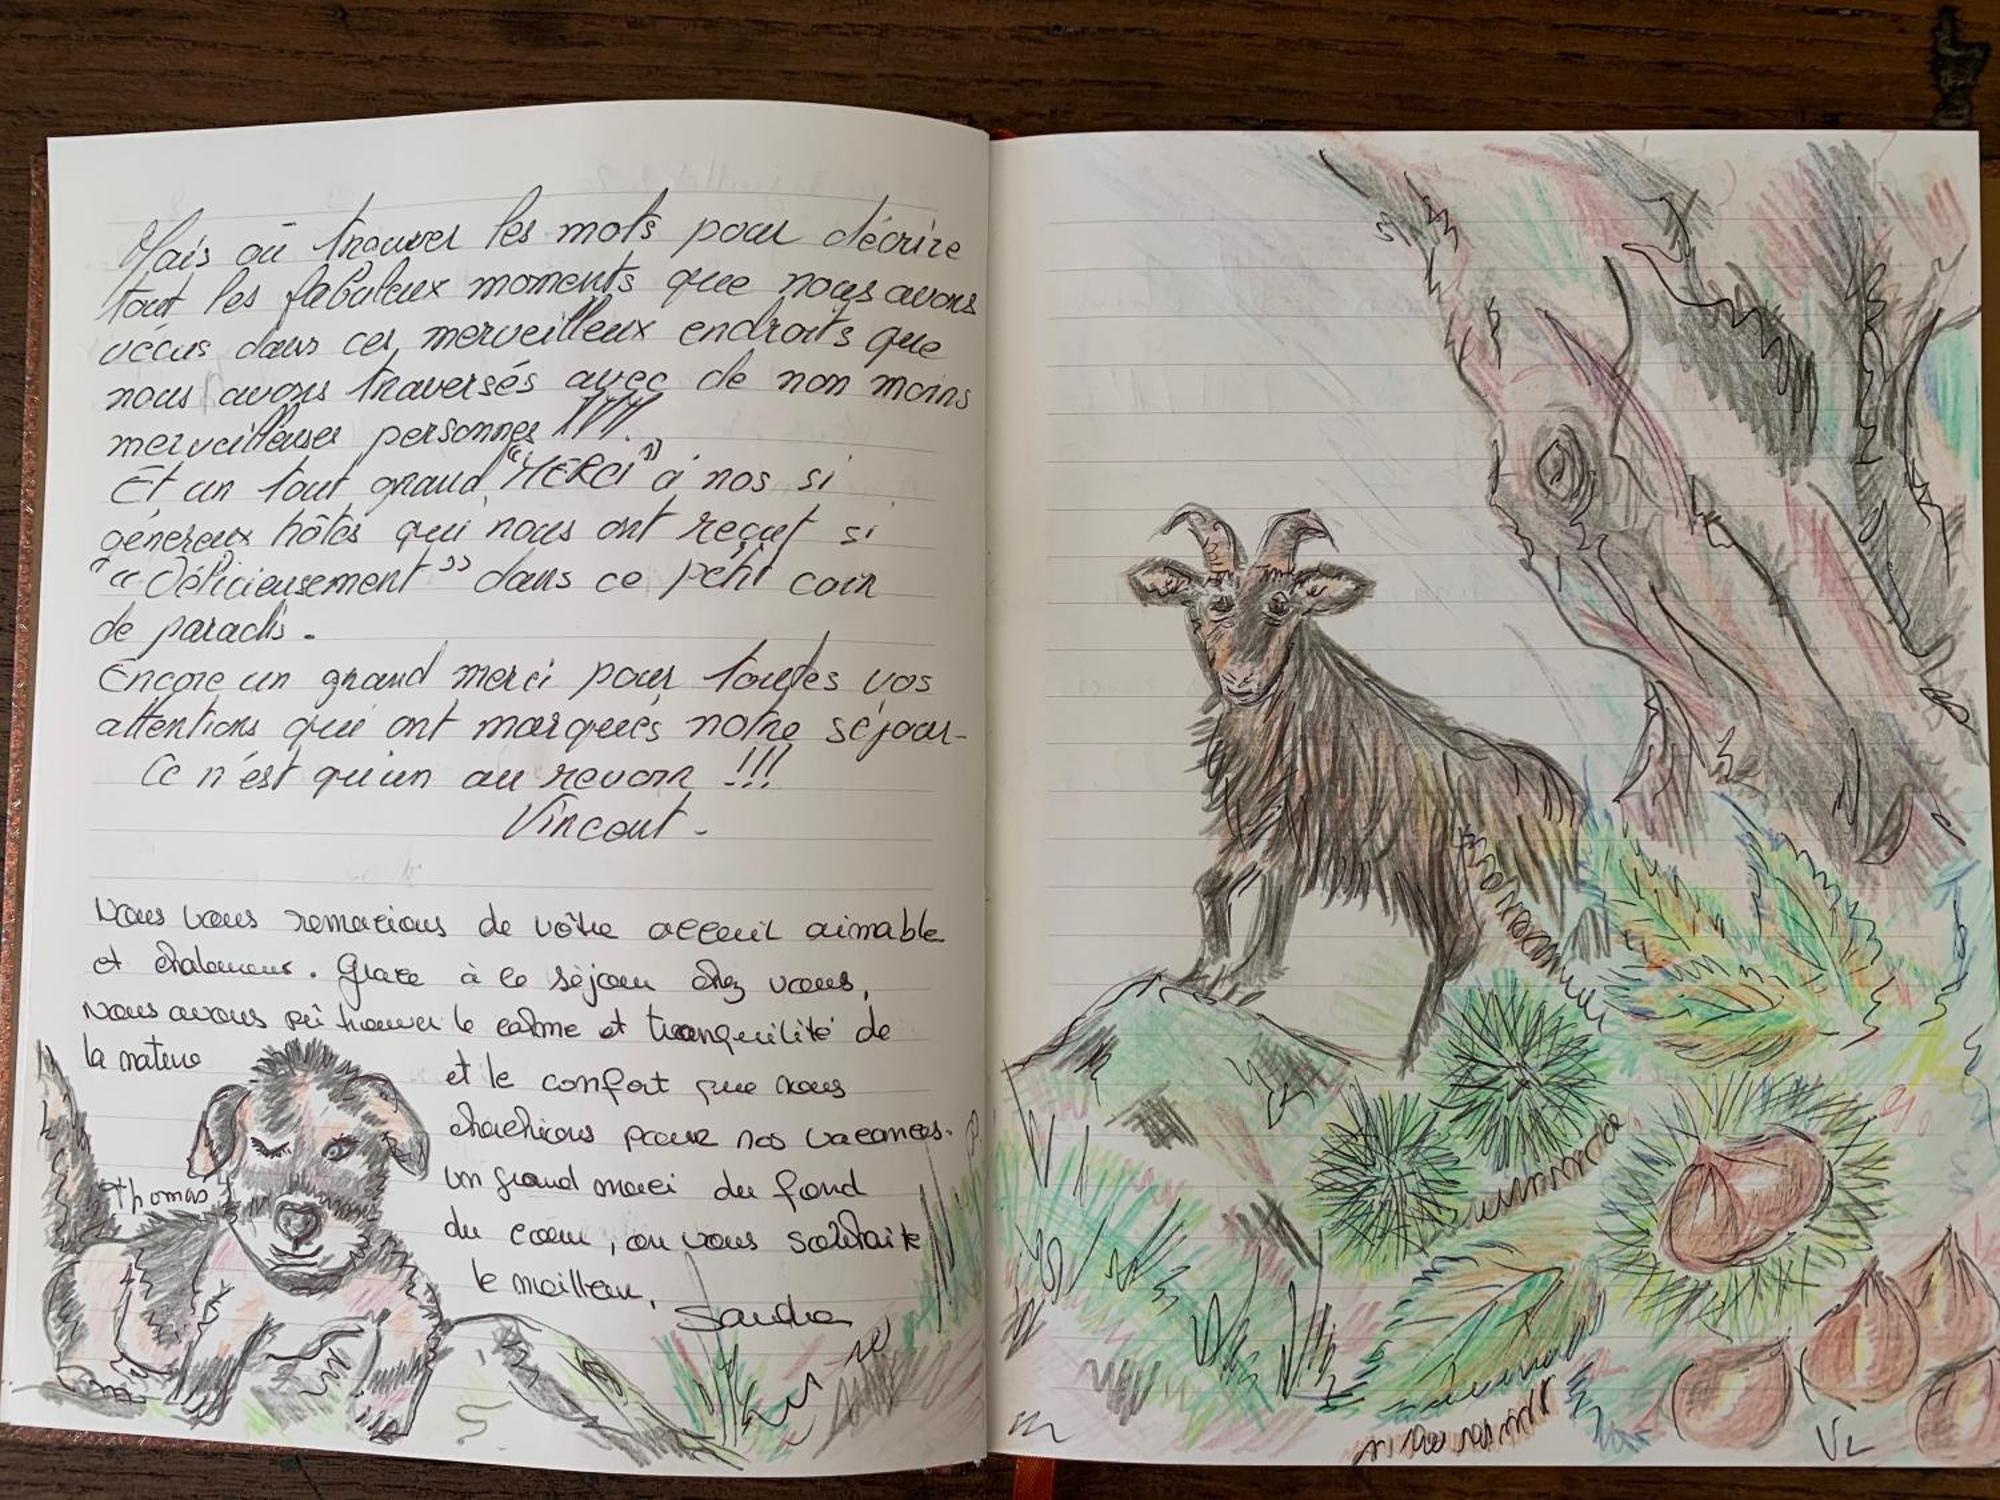 Mais où trouver les mots pour décrire
tout les fabuleux moments que nous avons
vécus dans ces merveilleux endroits que
nous avons traversés avec de non moins
merveilleuses personnes !!!!
Et un tout grand "MERCI" à nos si
généreux hôtes qui nous ont reçut si
"Délicieusement" dans ce petit coin
de paradis.
Encore un grand merci pour toutes vos
attentions qui ont marqués notre séjour-
Ce n'est qu'un au revoir !!!
Vincent-
Nous vous remercions de vôtre acceuil aimable
et chaleureux. Grace à ce séjour chez vous,
nous avons pû trouver le calme et tranquilité de
la nature
et le confort que nous
cherchions pour nos vacances.
un grand merci du fond
du coeur, on vous souhaite
le meilleur,
Sandra
Thomas
VL